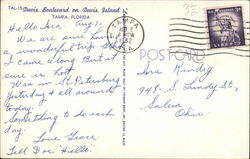 TAL-15 Davis Boulevard on Davis Island
TAMPA, FLORIDA
Hello Dora, Aug 1-
We are sure having
a wonderful trip. Glad
I came along. But it
sure is hot.
Was in St. Petersburg
yesterday & all around
today.
Something to do each
day.
Love Grace
Tell Doc Hello!
TAMPA
AUG 2
PM
1957
FLA.
POST CARD
LIBERTY
3¢
948 - S. Lundy St.,
Salem
Ohio.